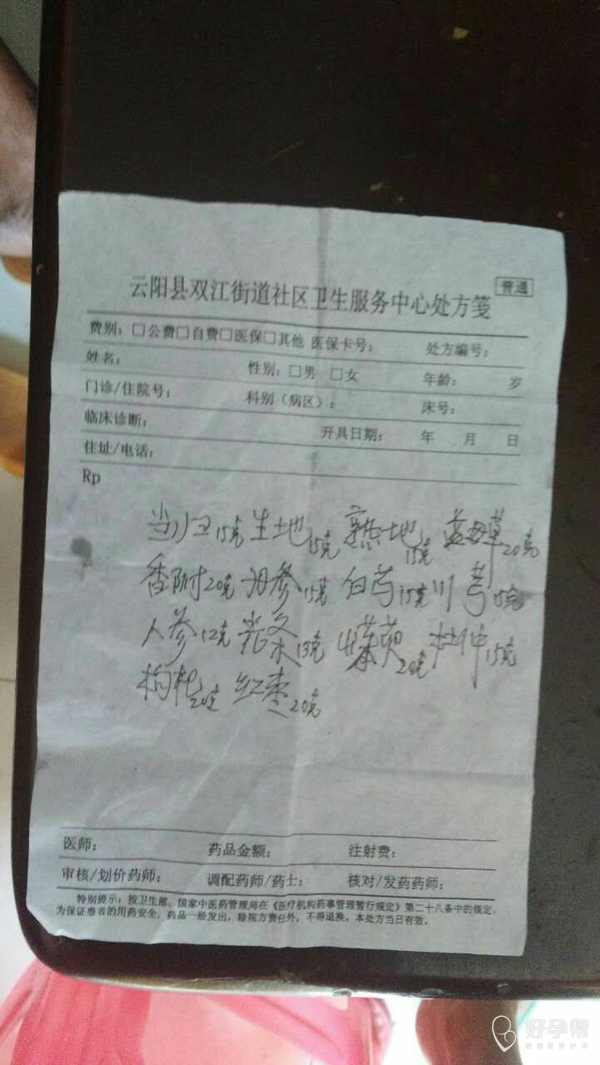 普通
云阳县双江街道社区卫生服务中心处方笺
费别：□公费□自费□医保□其他 医保卡号： 处方编号：
姓名： 性别：□男 □女 年龄： 岁
门诊/住院号： 科别（病区）： 床号：
临床诊断： 开具日期： 年 月 日
住址/电话：
Rp
当归15克 生地15克 熟地15克 益母草20克
香附20克 丹参15克 白芍15克 川芎15克
人参12克 13克 山茱萸20克 杜仲15克
枸杞20克 红枣20克
医师： 药品金额： 注射费：
审核/划价药师： 调配药师/药士： 核对/发药药师：
特别提示：按卫生部、国家中医药管理局在《医疗机构药事管理暂行规定》第二十八条中的规定，
为保证患者的用药安全，药品一经发出，除院方责任外，不得退换。本处方当日有效。
好孕帮